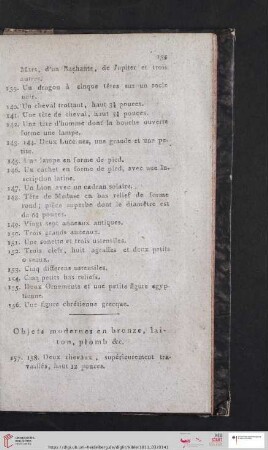 Mars, d'un Bachante, de Jupiter et trois
autres.
139. Un dragon à cinque têtes sur un socle
noir.
140. Un cheval trottant, haut 3½ pouces.
141. Une tête de cheval, haut 3½ pouces.
142. Une tête d'homme dont la bouche ouverte
forme une lampe.
143. 144. Deux Lucernes, une grande et une pe-
tite.
145. Une lampe en forme de pied.
146. Un cachet en forme de pied, avec une In-
scription latine.
147. Un Lion avec un cadran solaire.
148. Tête de Meduse en bas relief de forme
rond; pièce superbe dont le diamètre est
de pouces.
149. Vingt sept anneaux antiques.
150. Trois grands anneaux.
151. Une and trois ustensiles.
152. Trois clefs, huit agraffes et deux petits
oiseaux.
153. Cinq differens ustensiles.
154. Cinq petits bas reliefs.
155. Deux Ornements et une petite figure egyp-
tienne.
156. Une figure chrétienne grecque.
Objets modernes en bronze, lai-
ton, plomb &c.
157. 158. Deux chevaux, supérieurement tra-
vaillés, haut 12 pouces.